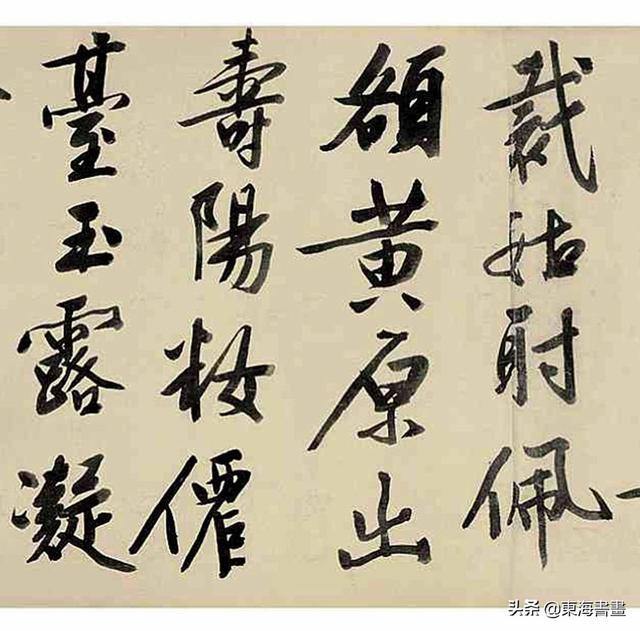 裁姑射佩
額黄原出
壽陽妝僊
臺玉露凝
头条 @東海書畫